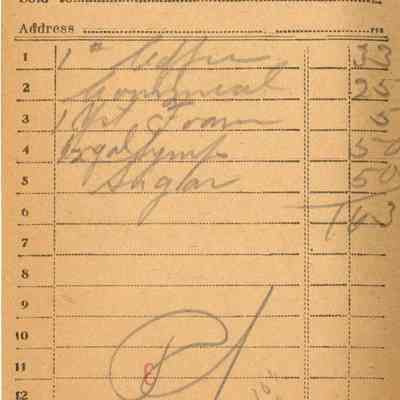 Sold To
Address
1 1# Coffee 33
2 Cornmeal 25
3 1 Foam 5
4 ½ gal Syrup 50
5 Sugar 50
6 1 63
7
8
9
10
11 8
12